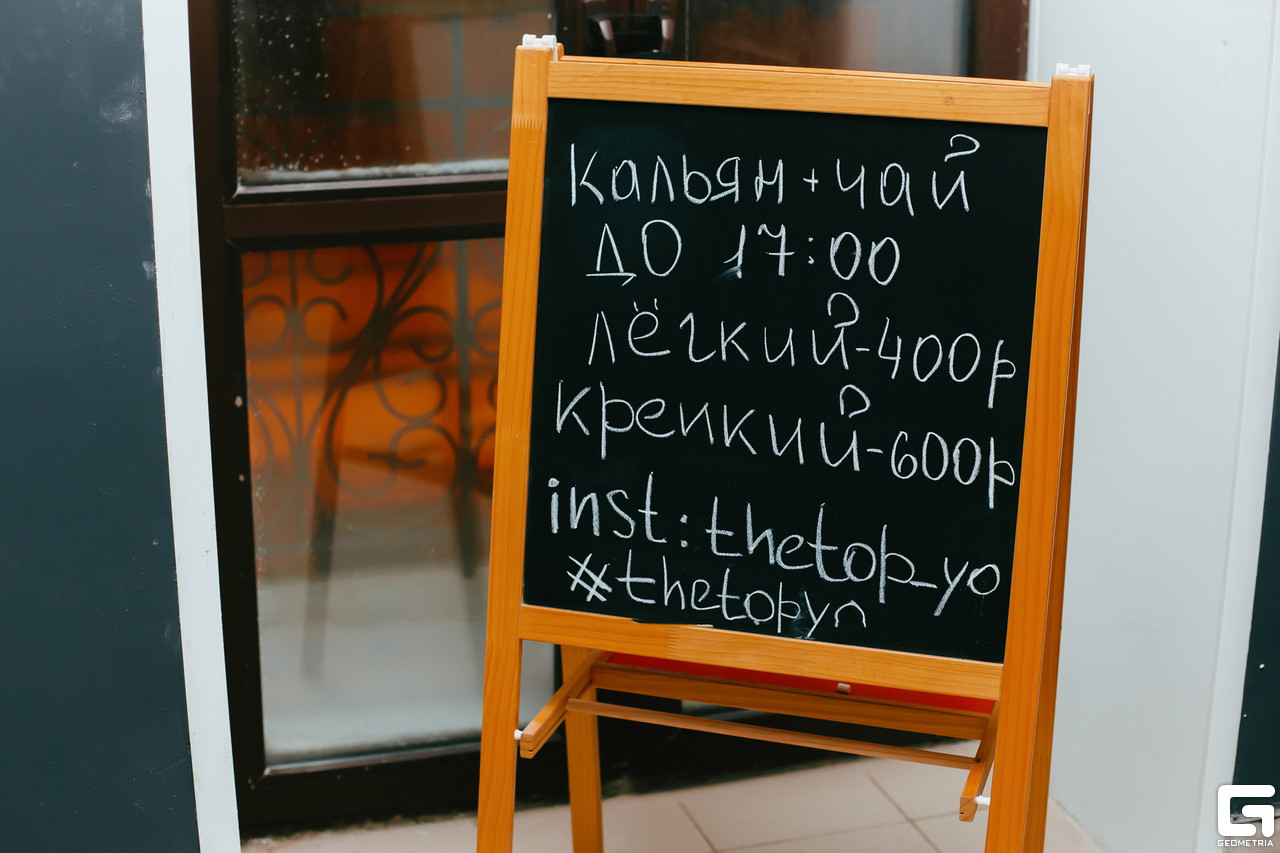 Кальян + чай
ДО 17:00
лёгкий - 400р
крепкий - 600р
inst: thetop_yo
#thetopyo
GEOMETRIA